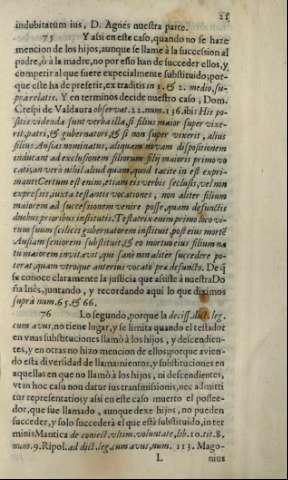 25
indubitatum ius, D. Agnes nuestra parte.
75 Y assi en este caso, quando no se haze
mencion de los hijos, aunque se llame à la succession al
padre, ò à la madre, no por esso han de succeder ellos, y
competir al que fuere expecialmente substituido; por-
que este ha de preferir, ex traditis in 1. & 2. medio, su-
pra relatis. Y en terminos decide nuestro caso, Dom.
Crespi de Valdaura observat. 22. num. 136. ibi: His po-
sitis videnda sunt verba illa, si filius maior super vixe-
rit patri, & gubernatori, & si non super vixerit, alius
filius Ausias nominatus, aliquam novam dispositionem
inducant ad exclusionem filiorum filij maioris primo vo
cati, an verò nihil aliud quam, quod tacite in est expri-
mant: Certum est enim, etiam eis verbis seclusis, vel non
expressis, iuxta testantis vocationes, non aliter filium
maiorem ad successionem venire posse, quam defunctis
duobus prioribus institutis. Testatrix enim primo loco vi-
rum suum scilicet gubernatorem instituit, post eius mortē
Ausiam seniorem substituit, & eo mortuo eius filium na
tu maiorem invitavit, qui sanè non aliter succedere po-
terat, quam utroque anterius vocato præ defuncto. De q̃
se conoce claramente la justicia que assiste à nuestra Do
ña Inès, juntando, y recordando aqui lo que diximos
supra num. 65. & 66.
76 Lo segundo, porque la deciss. dict. leg.
cum avus, no tiene lugar, y se limita quando el testador
en vnas substituciones llamò à los hijos, y descendien-
tes, y en otras no hizo mencion de ellos; porque avien-
do esta diversidad de llamamientos, y substituciones en
aquellas en que no llamò à los hijos, ni descendientes,
vt in hoc casu non datur ius transmissionis, nec admitti
tur representatio; y assi en este caso muerto el posee-
dor, que fue llamado, aunque dexe hijos, no pueden
succeder, y solo succederà el que està substituido, in ter
minis Mantica de coniect. vltim. voluntate, lib. 10. tit. 8.
num. 9. Ripol. ad dict. leg. cum avus, num. 113. Mago-
L nius